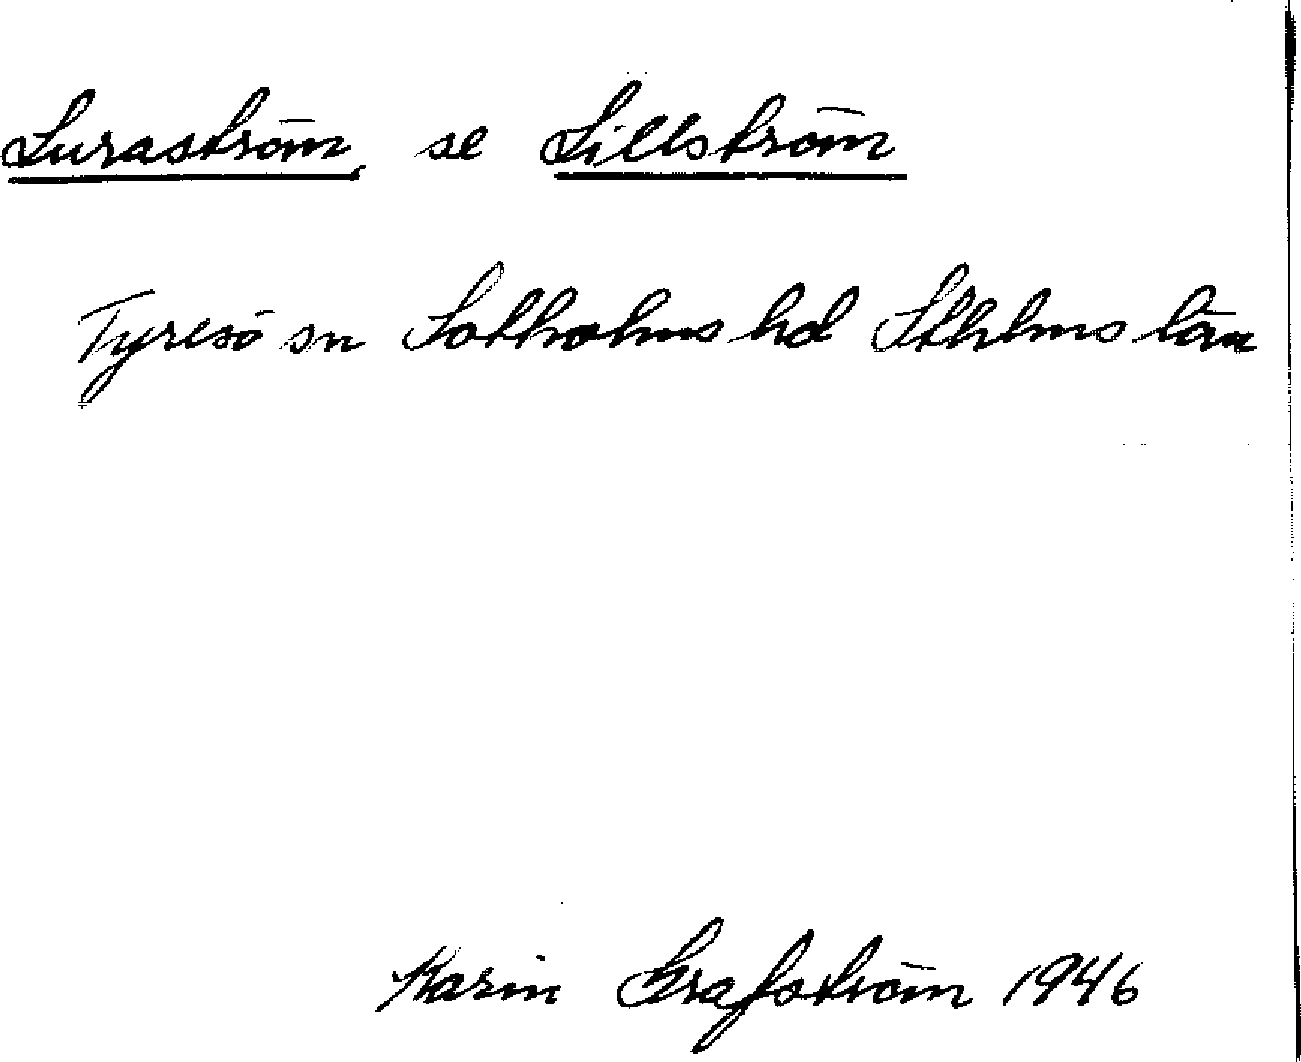 Luraström, se Lillström
Tyresö sn Sotholms hd Sthlms län
Karin Grafström 1946